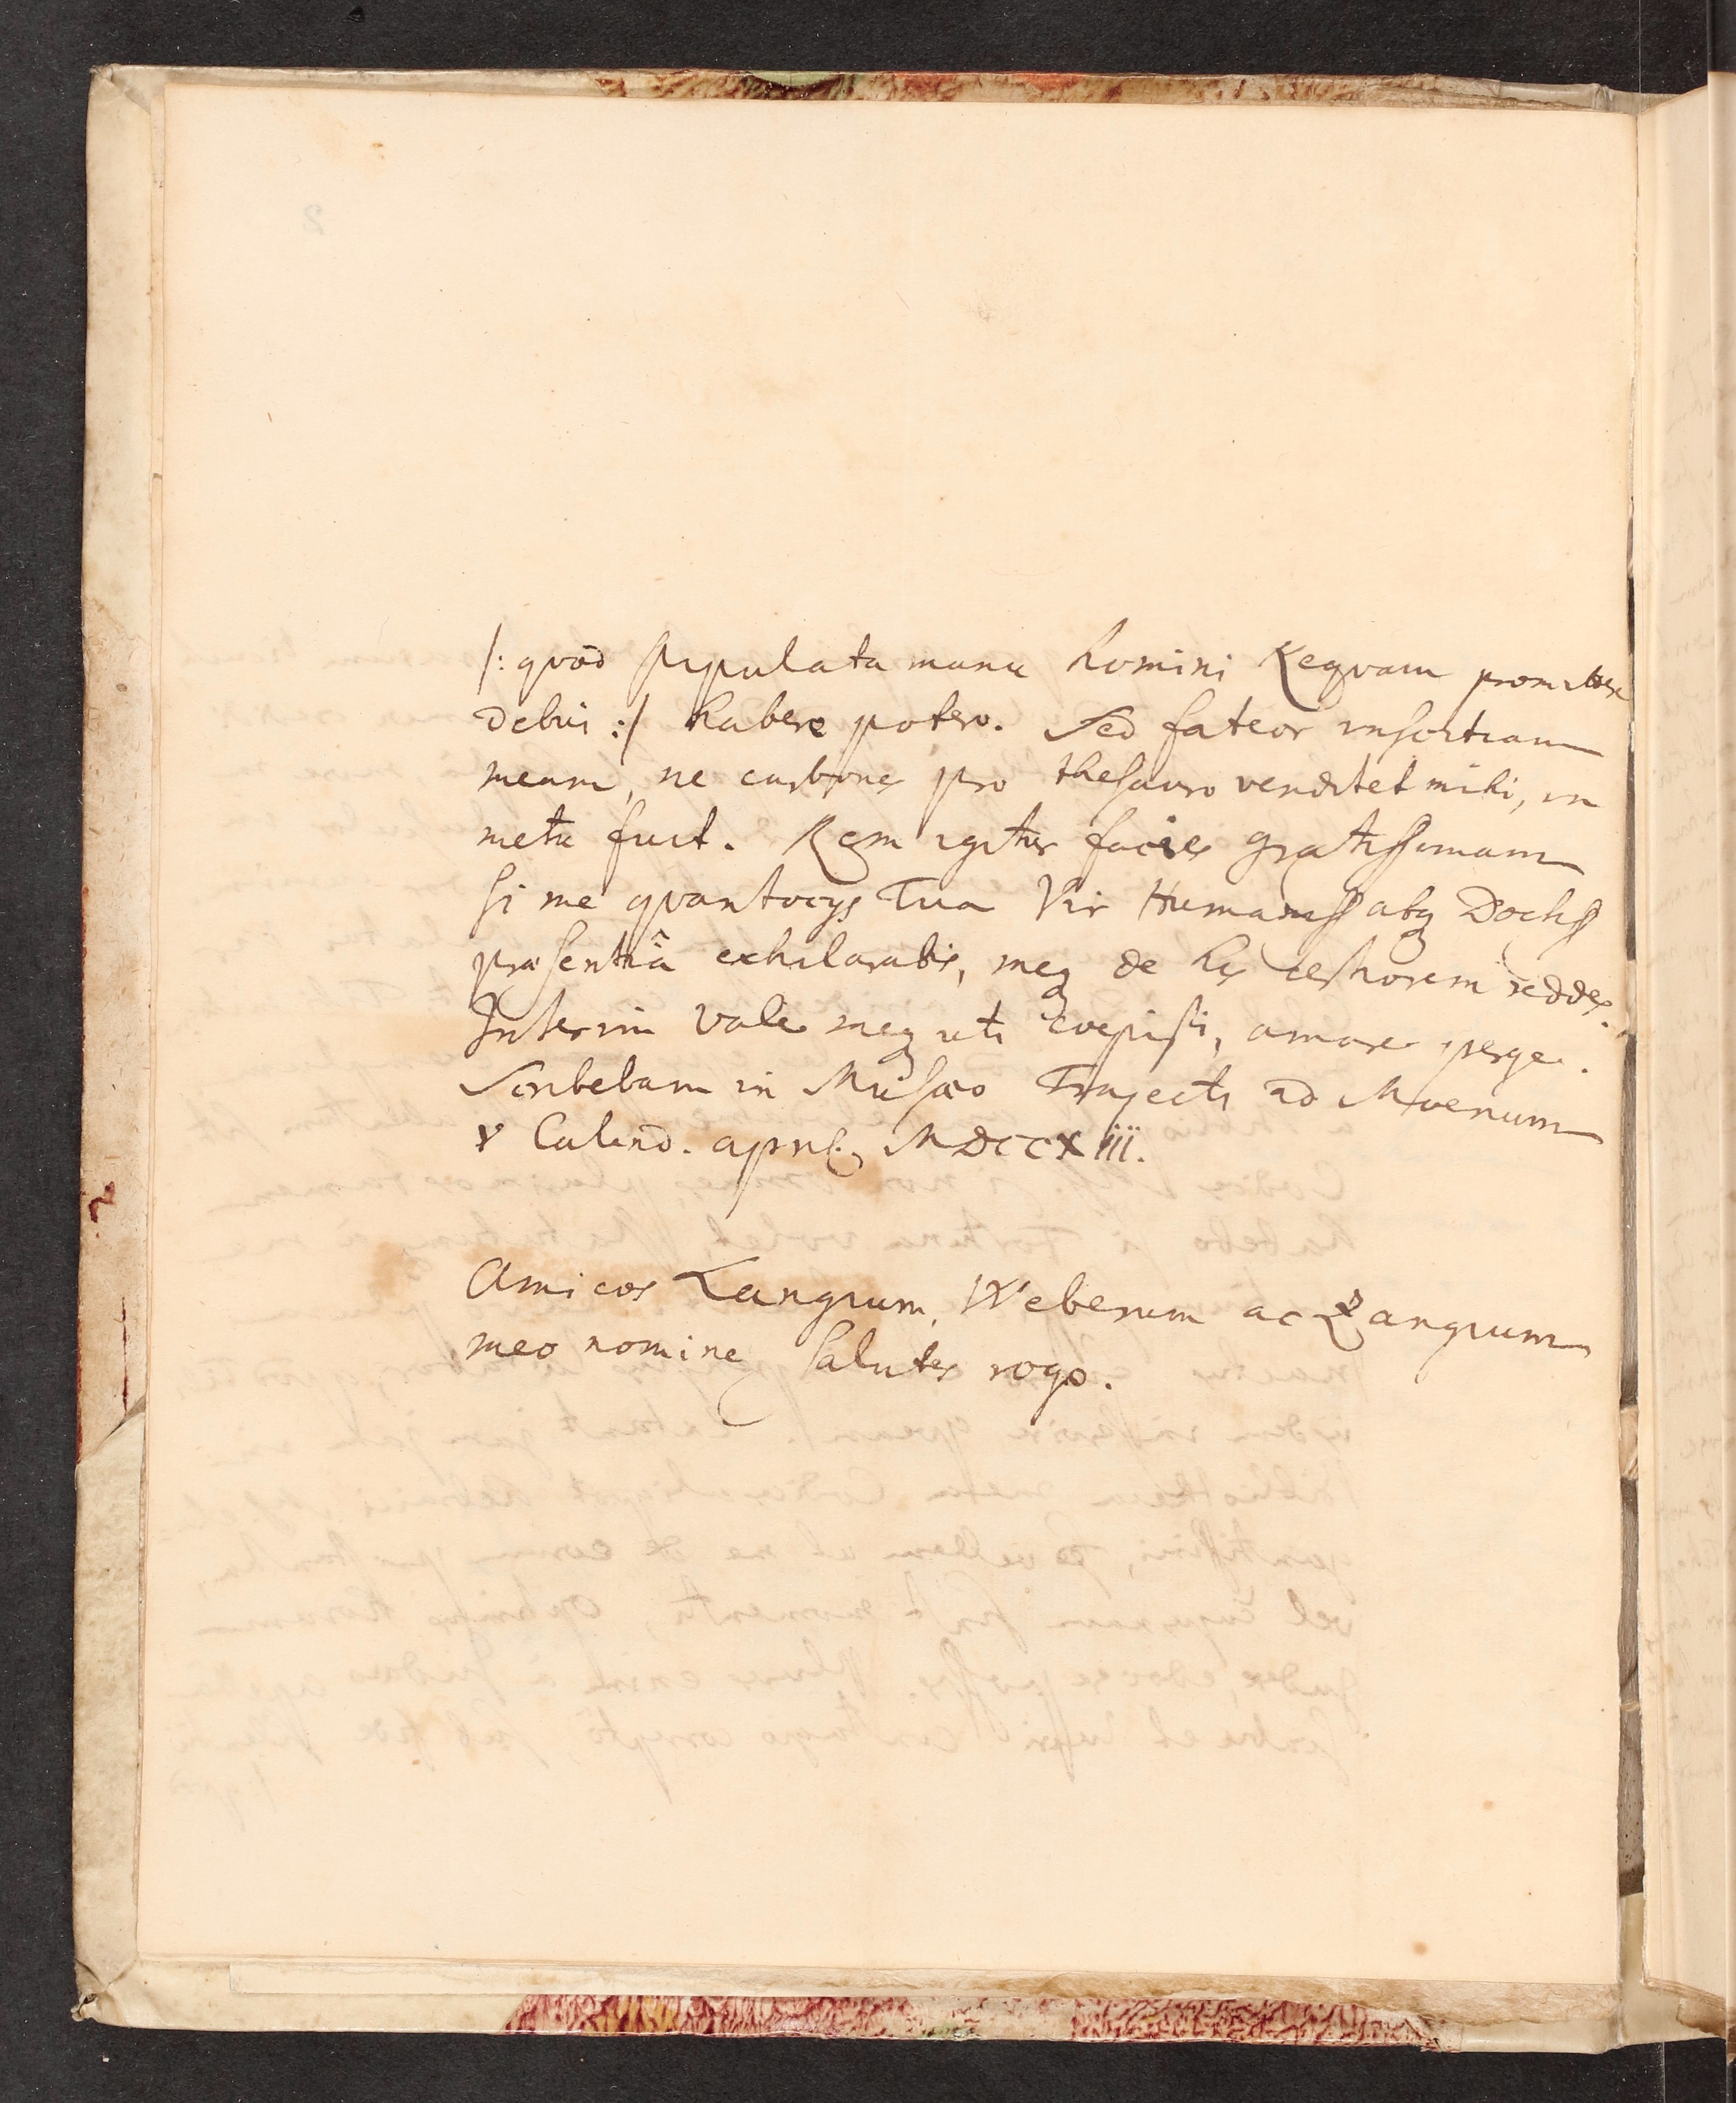 /: quod stipulata manu homini Nequam promittere
debui :/ habere potero. Sed fateor inscitiam
meam, ne carbones pro thesauro venditet mihi, in
metu fuit. Rem igitur facies gratissimam
si me quantocys Tua Vir Humaniss atq Doctiss
præsentiâ exhilarabis, meq de his certiorem reddes.
Interim Vale meq uti coepisti, amare perge.
Scribebam in Musæo Trajecti ad Moenum
V Calend. april. MDCCXIII.
Amicos Langium, Weberum ac Zangium
meo nomine salutes rogo.